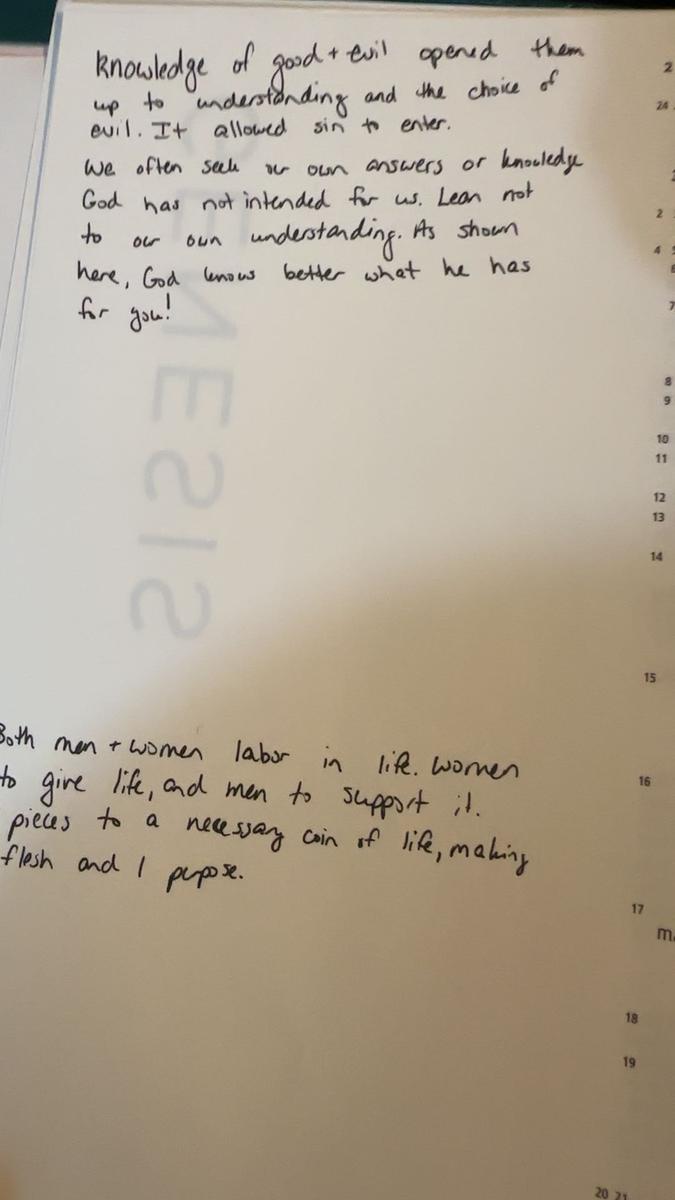 Knowledge of good + evil opened them
up to understanding and the choice of
evil. It allowed sin to enter.
We often seek our own answers or knowledge
God has not intended for us. Lean not
to our own understanding. As shown
here, God knows better what he has
for you!
GENESIS
Both men + women labor in life. Women
to give life, and men to support it.
pieces to a necessary coin of life, making
flesh and 1 purpose.
2
24
2
4
7
8
9
10
11
12
13
14
15
16
17
m
18
19
20 21